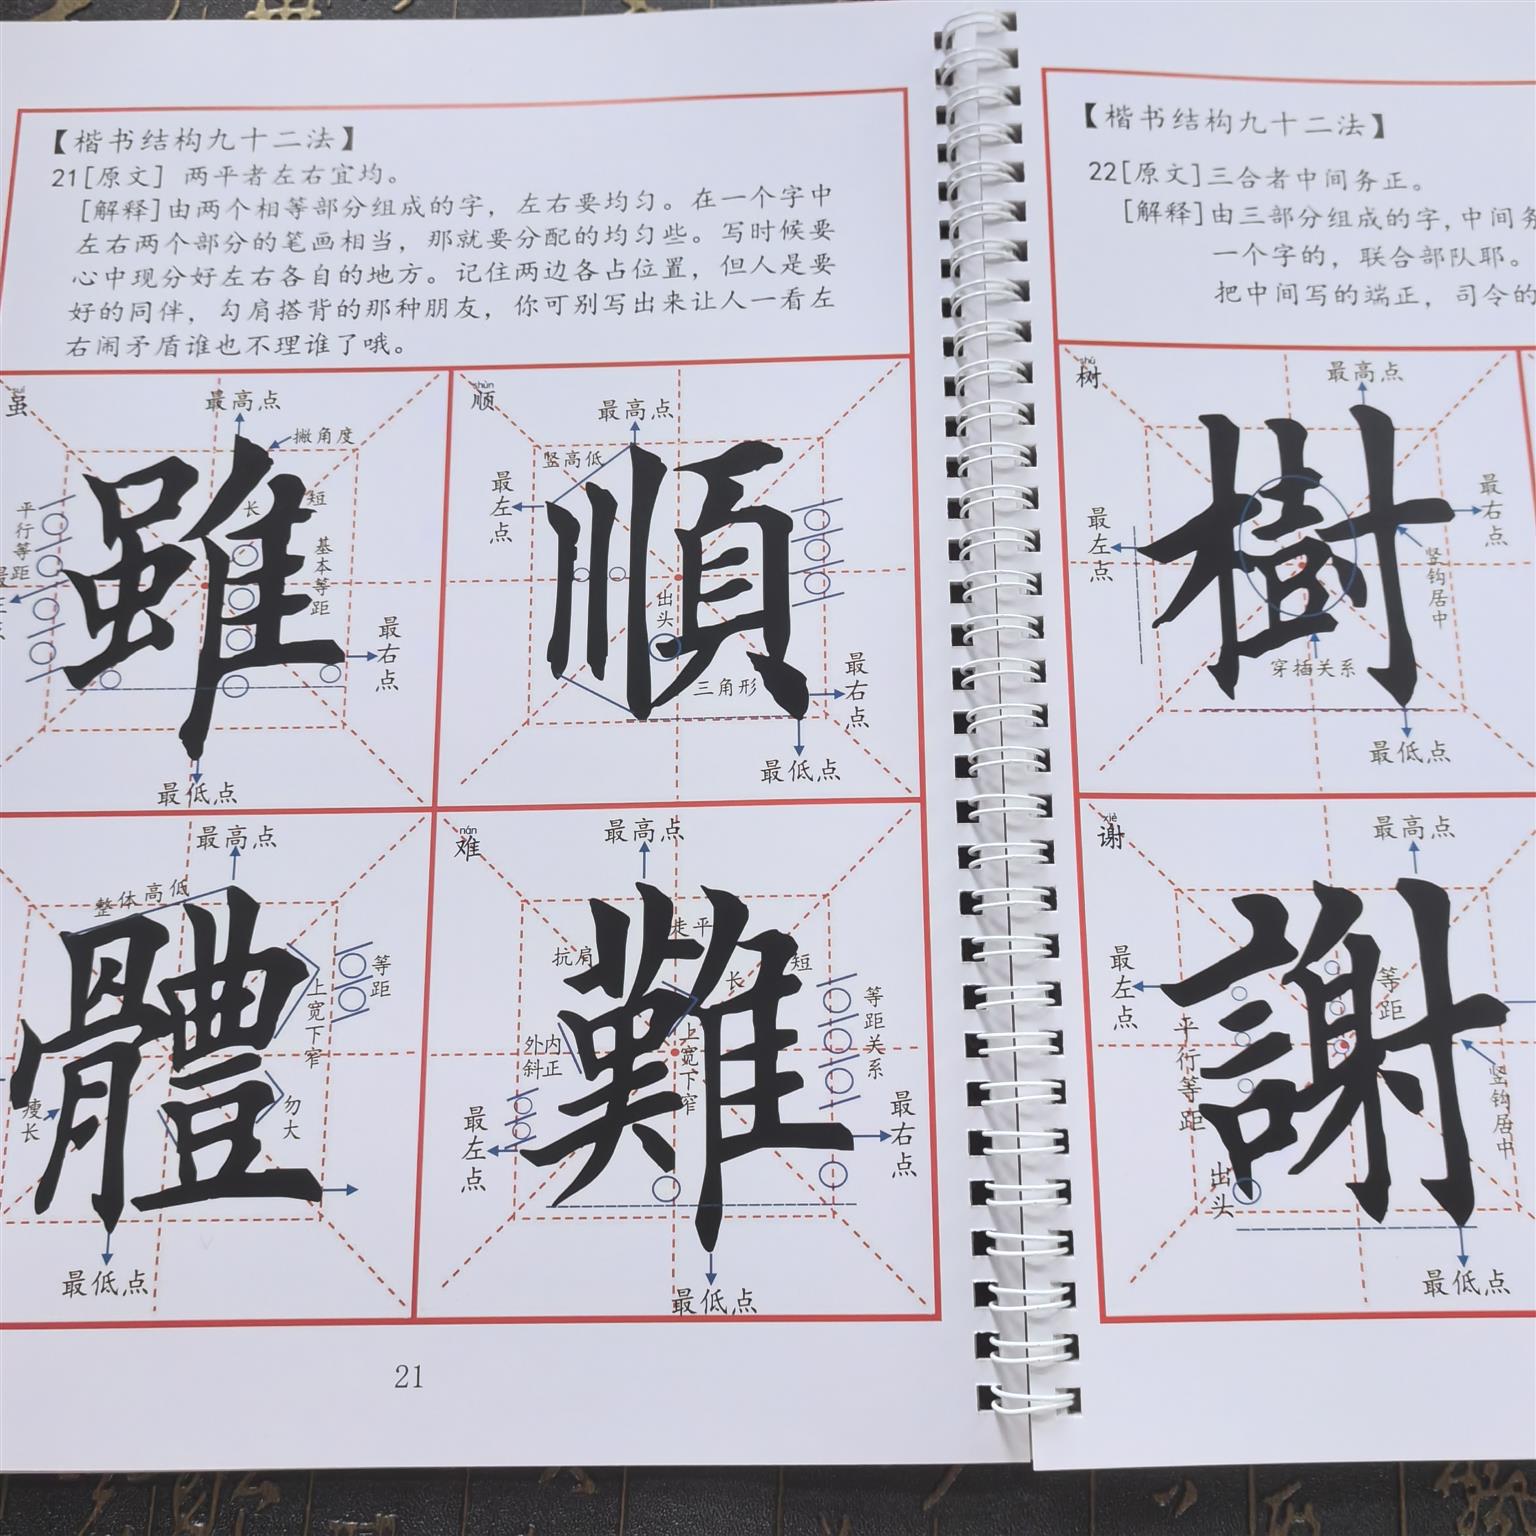 【楷书结构九十二法】
21[原文] 两平者左右宜均。
[解释]由两个相等部分组成的字，左右要均匀。在一个字中
左右两个部分的笔画相当，那就要分配的均匀些。写时候要
心中现分好左右各自的地方。记住两边各占位置，但人是要
好的同伴，勾肩搭背的那种朋友，你可别写出来让人一看左
右闹矛盾谁也不理谁了哦。
suī
虽
最高点
撇角度
长
短
平行等距
基本等距
最右点
最低点
雖
shùn
顺
最高点
竖高低
最左点
出头
三角形
最右点
最低点
順
最高点
整体高低
等距
上宽下窄
瘦长
勿大
最低点
體
nán
难
最高点
走平
抗肩
长
短
等距关系
外斜
内正
上宽下窄
最左点
最右点
最低点
難
21
【楷书结构九十二法】
22[原文]三合者中间务正。
[解释]由三部分组成的字，中间务
一个字的，联合部队耶。
把中间写的端正，司令的
shù
树
最高点
最左点
最右点
竖钩居中
穿插关系
最低点
樹
xiè
谢
最高点
最左点
等距
平行等距
竖钩居中
出头
最低点
謝